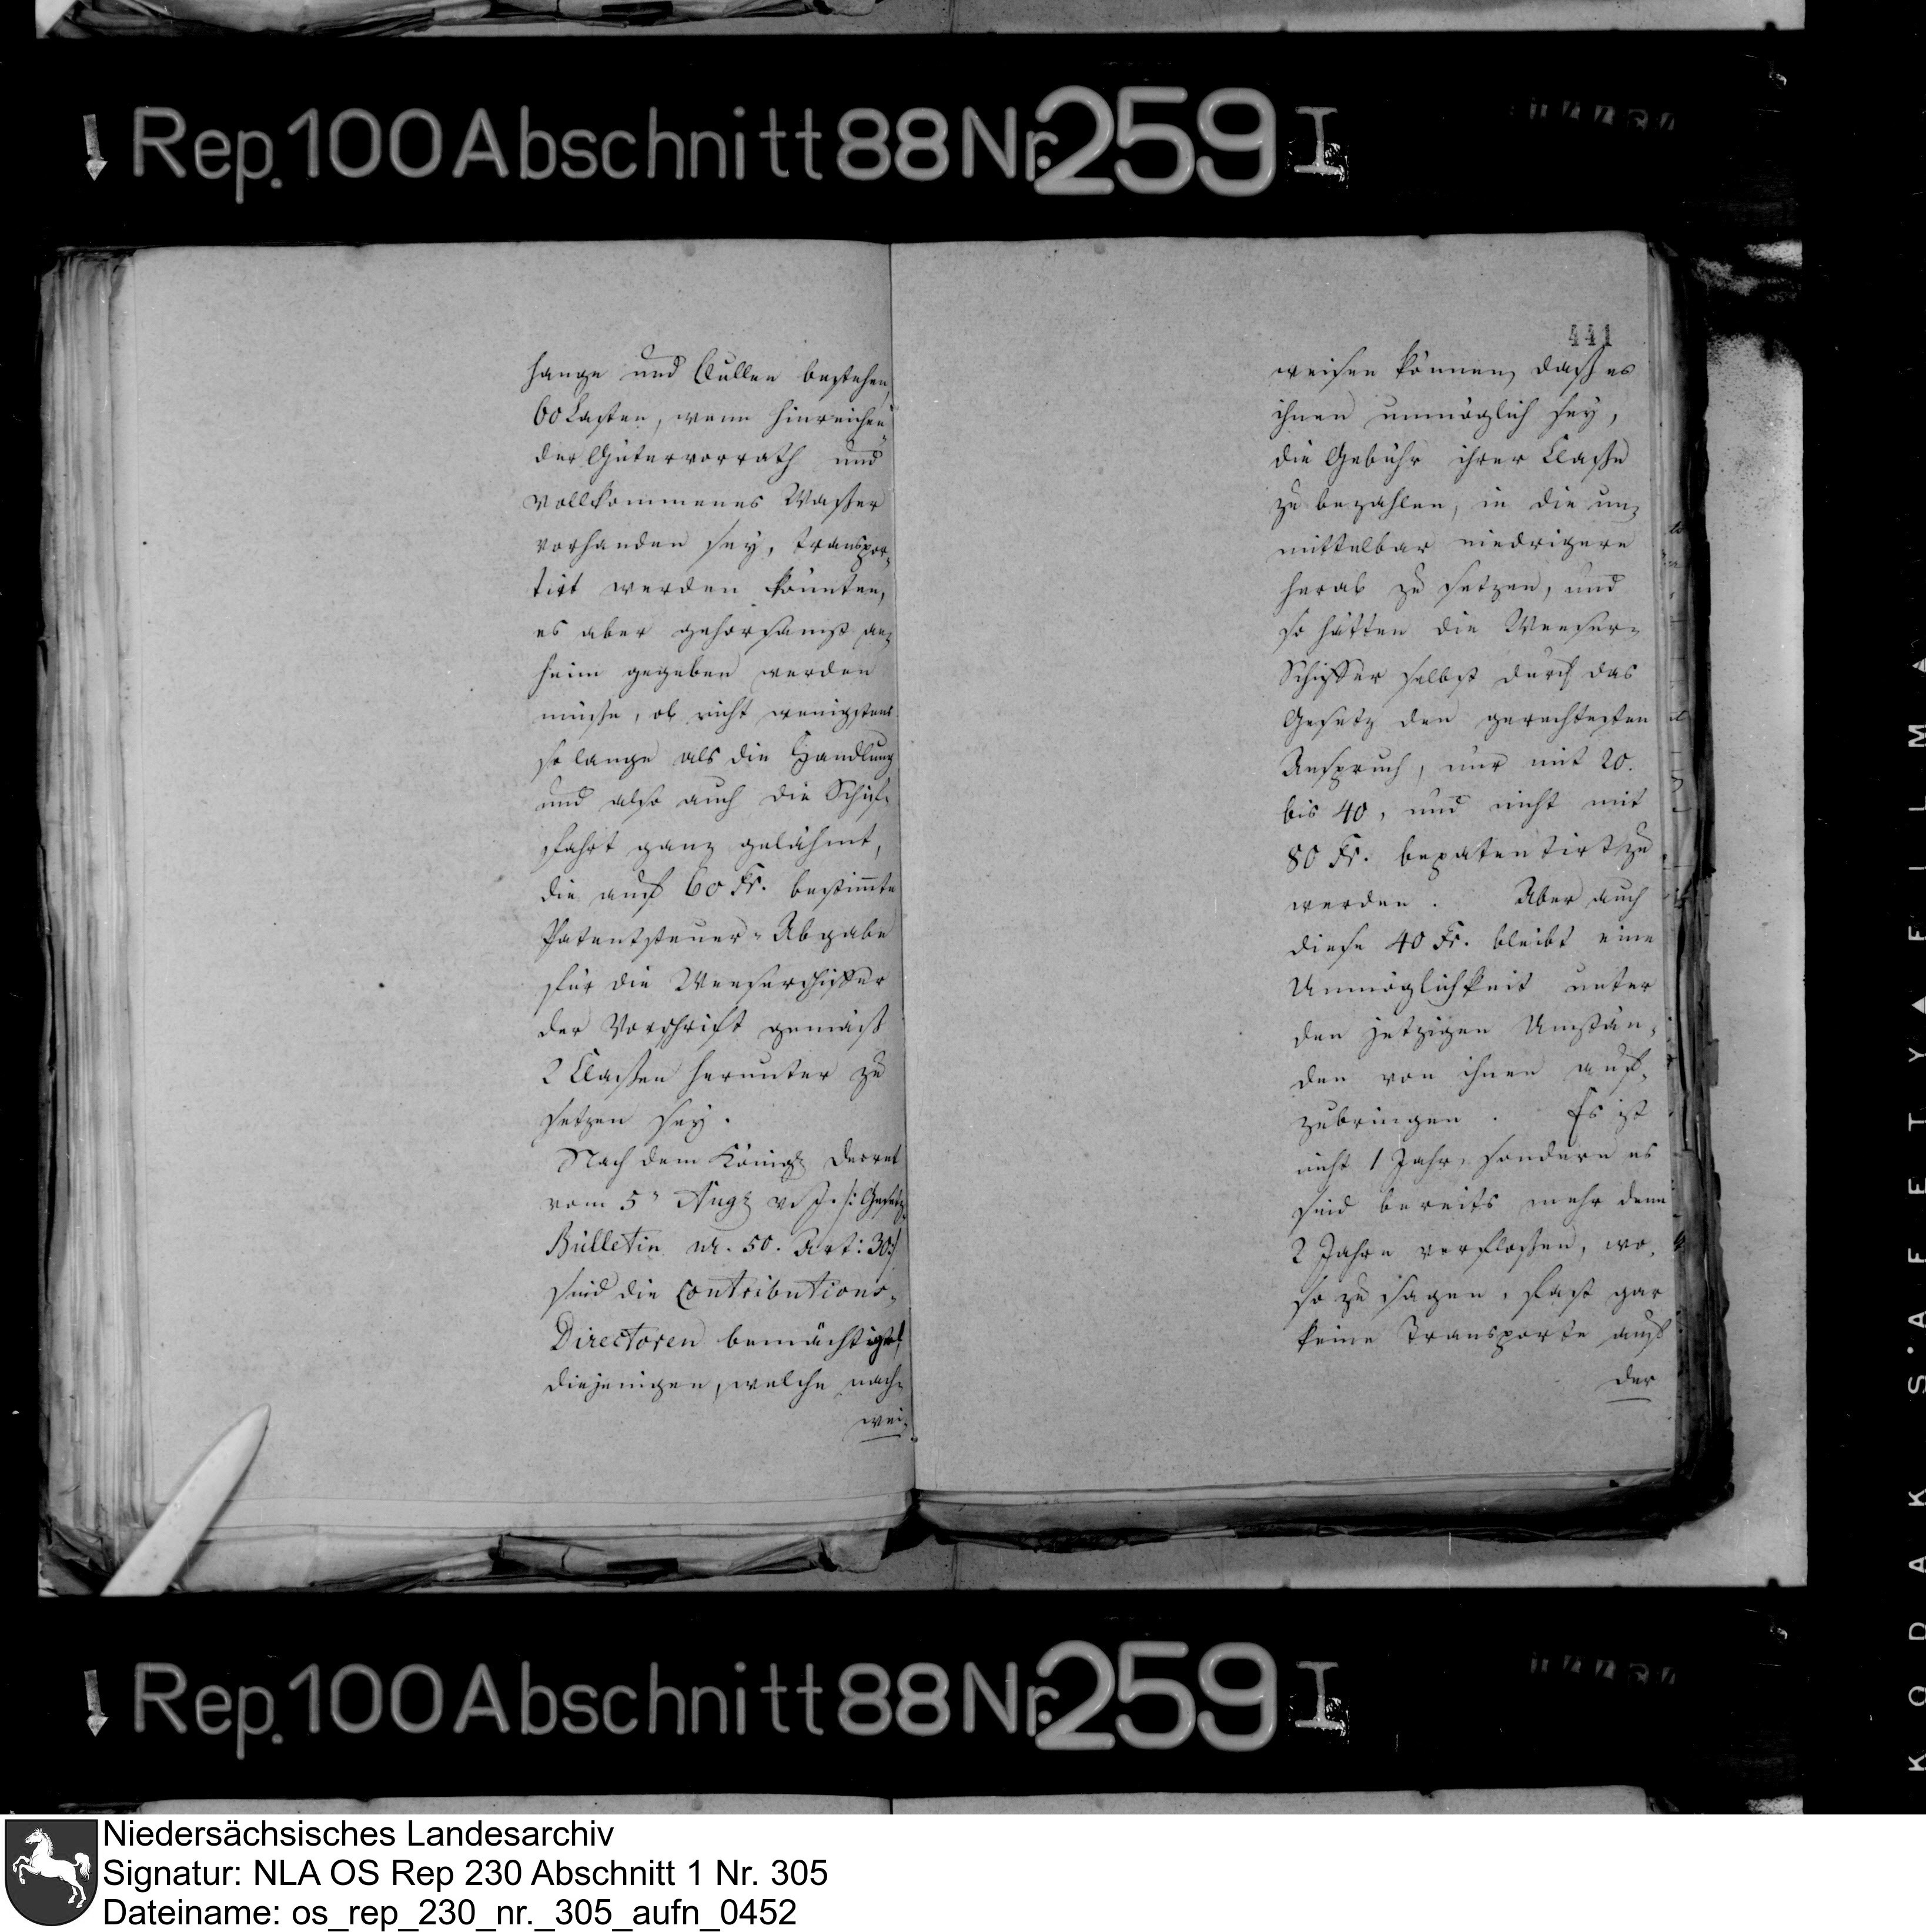 Rep. 100 Abschnitt 88 Nr. 259 I
hange und Bullen bestehen,
60 Lasten, wenn hinreichen
der Gütervorrath und
vollkommenes Waßer
vorhanden sey, transpor-
tirt werden könnten,
es aber gehorsamst an-
heim gegeben werden
müsse, ob nicht wenigstens
so lange als die Handlung
und also auch die Schif-
fahrt ganz gelähmt,
die auf 60 Fr. bestimte
Patentsteuer-Abgabe
für die Weeserschiffer
der Vorschrift gemäß
2 Claßen herunter zu
setzen sey.
Nach dem Königl. Decret
vom 5n Aug. v. J. /: Gesetz-
Bülletin nr. 50. Art: 30 :/
sind die Contributions-
Directoren bemächtiget,
diejenigen, welche nach-
wei-
441
weisen können, daß es
ihnen unmöglich sey,
die Gebühr ihrer Claße
zu bezahlen, in die un-
mittelbar niedrigere
herab zu setzen, und
so hätten die Weeser-
Schiffer selbst durch das
Gesetz den gerechtesten
Anspruch, nur mit 20.
bis 40, und nicht mit
80 Fr. bepatentirt zu
werden. Aber auch
diese 40 Fr. bleibt eine
Unmöglichkeit unter
den jetzigen Umstän-
den von ihnen auf-
zubringen. Es ist
nicht 1 Jahr, sondern es
sind bereits mehr denn
2 Jahre verfloßen, wo,
so zu sagen, fast gar
keine Transporte auf
der
Rep. 100 Abschnitt 88 Nr. 259 I
KODAK SAFETY FILM
Niedersächsisches Landesarchiv
Signatur: NLA OS Rep 230 Abschnitt 1 Nr. 305
Dateiname: os_rep_230_nr._305_aufn_0452